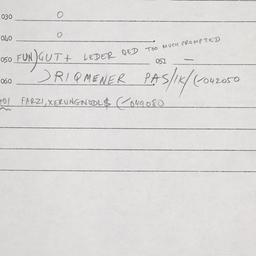 030 0
040 0
050 FUN)GUT+ LEDER DED TOO MUCH PROMPTED 052 —
060 )RIQMENER PAS/IK/(-042050
FARZI,XERUNGNUDL$ (-049080